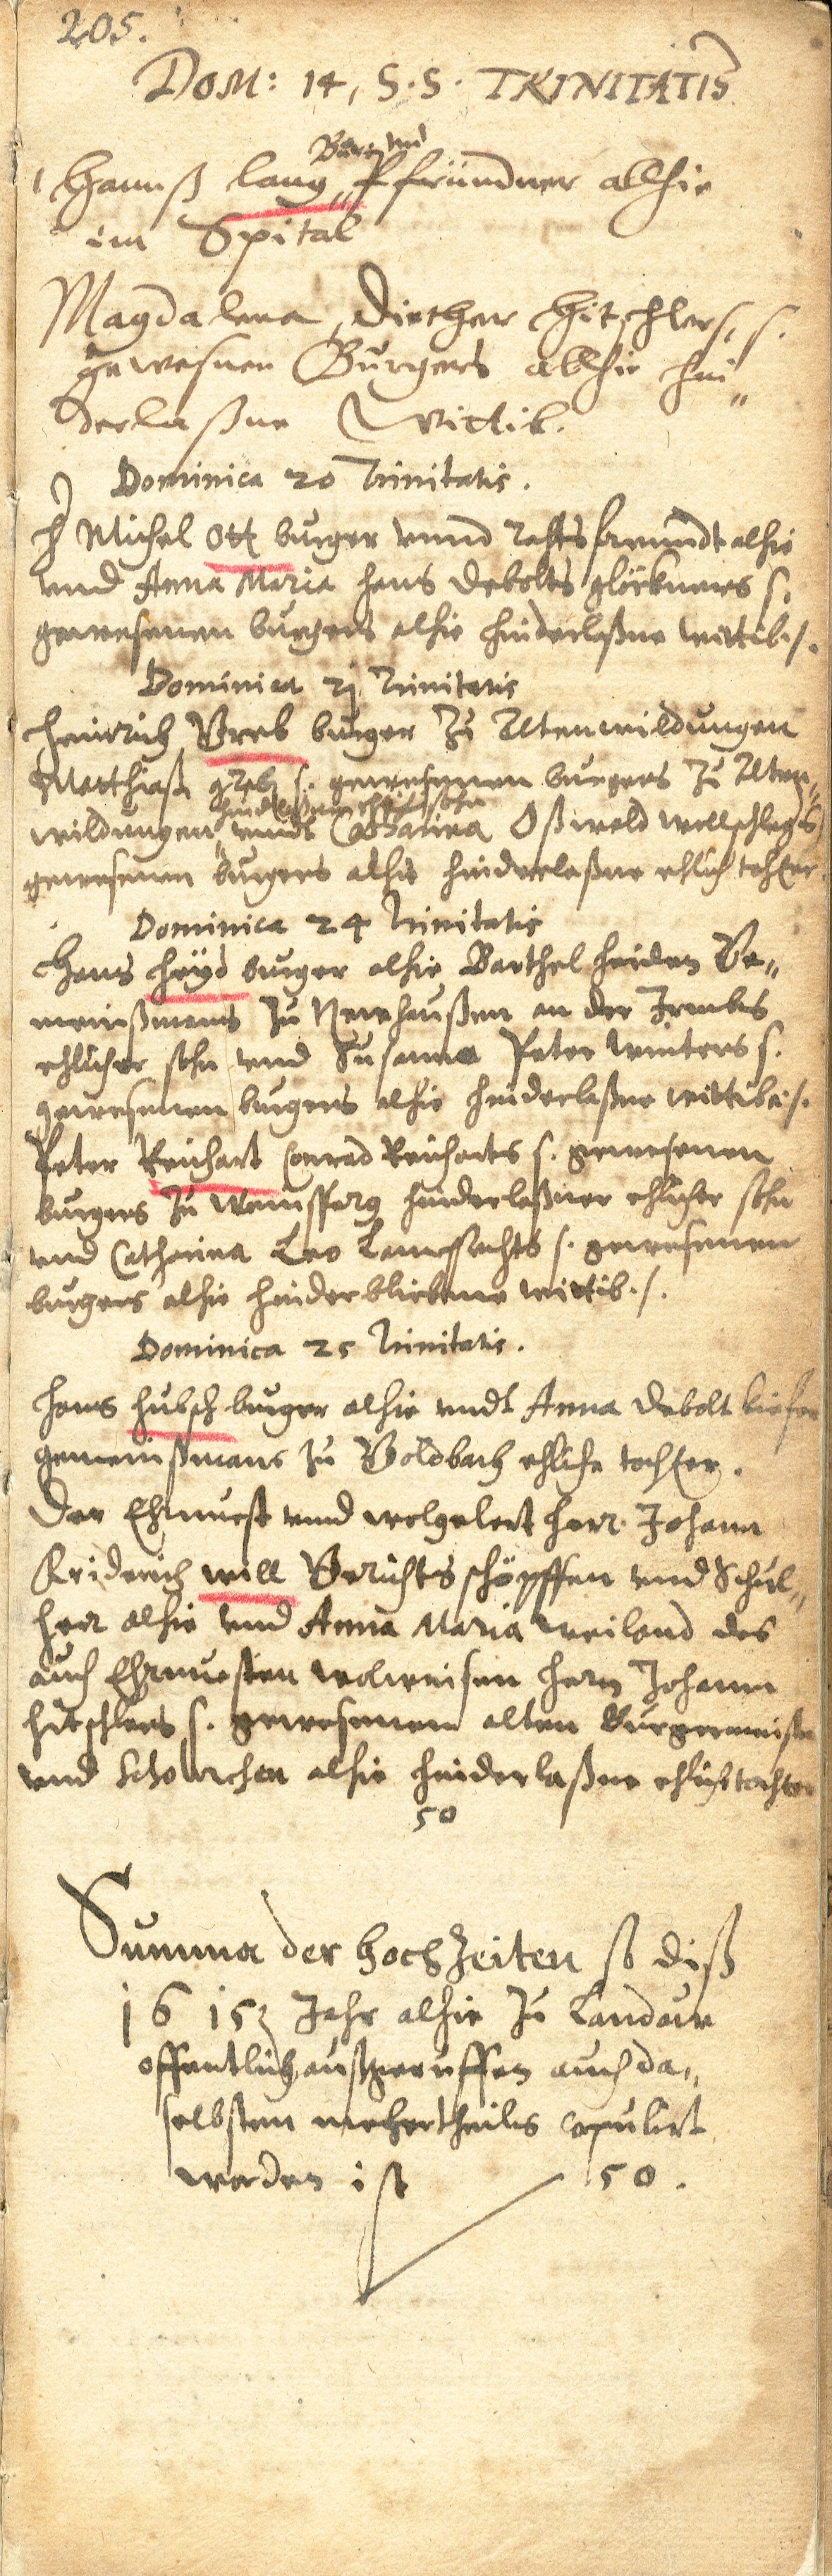 205.
DOM: 14, S.S. TRINITATIS
Burg. und
Hannß Lang, Pfründner allhie
im Spital
Magdalena, Diether Hitschlers, s.
gewesnen Burgers allhie hin„
derlaßne Wittib.
Dominica 20 Trinitatis.
H Michel Ott burger unnd Rahtsfreundt alhie
und Anna Maria Hans Debolts glöckners s.
gewesenen burgers alhie hinderlaßne wittib ./.
Dominica 2j Trinitatis
Heinrich Greb burger zu Altenwildungen
Matthiaß greb s. gewesenen burgers zu Alten„
hinderlaßner ehlicher sohn
wildungen, unndt Catharina Oßwald
gewesenen burgers alhie hinderlaßne ehlich tochter.
Dominica 24 Trinitatis
Hans Heyd burger alhie Barthel Heiden Ge„
meinßmans zu Newhaußen an der
ehlicher sohn und Susanna Peter Winters s.
gewesenen burgers alhie hinderlaßne wittibe ./.
Peter Reichart Conrad Reicharts s. gewesenen
burgers zu hinderlaßner ehlicher sohn
und Catharina Leo s. gewesenen
burgers alhie hinderbliebene wittib ./.
Dominica 25 Trinitatis.
Hans Hubsch burger alhie undt Anna Debolt kiefer
gemeinßmans zu ehliche tochter.
Der Ehrnvest unnd wolgelert Herr Johann
Friderich Will Gerichtsschöpffen und Schul„
herr alhie und Anna Maria weiland des
auch Ehrnvesten wolweisen Herrn Johann
Hitschlers s. gewesenen alten Burgermeister
und Scholarchen alhie hinderlaßne ehlich tochter
50
Summa der hochzeiten so diß
1615 Jahr alhie zu Landaw
offentlich außgeruffen auch da„
selbsten mehrertheils copulirt
worden ist 50.